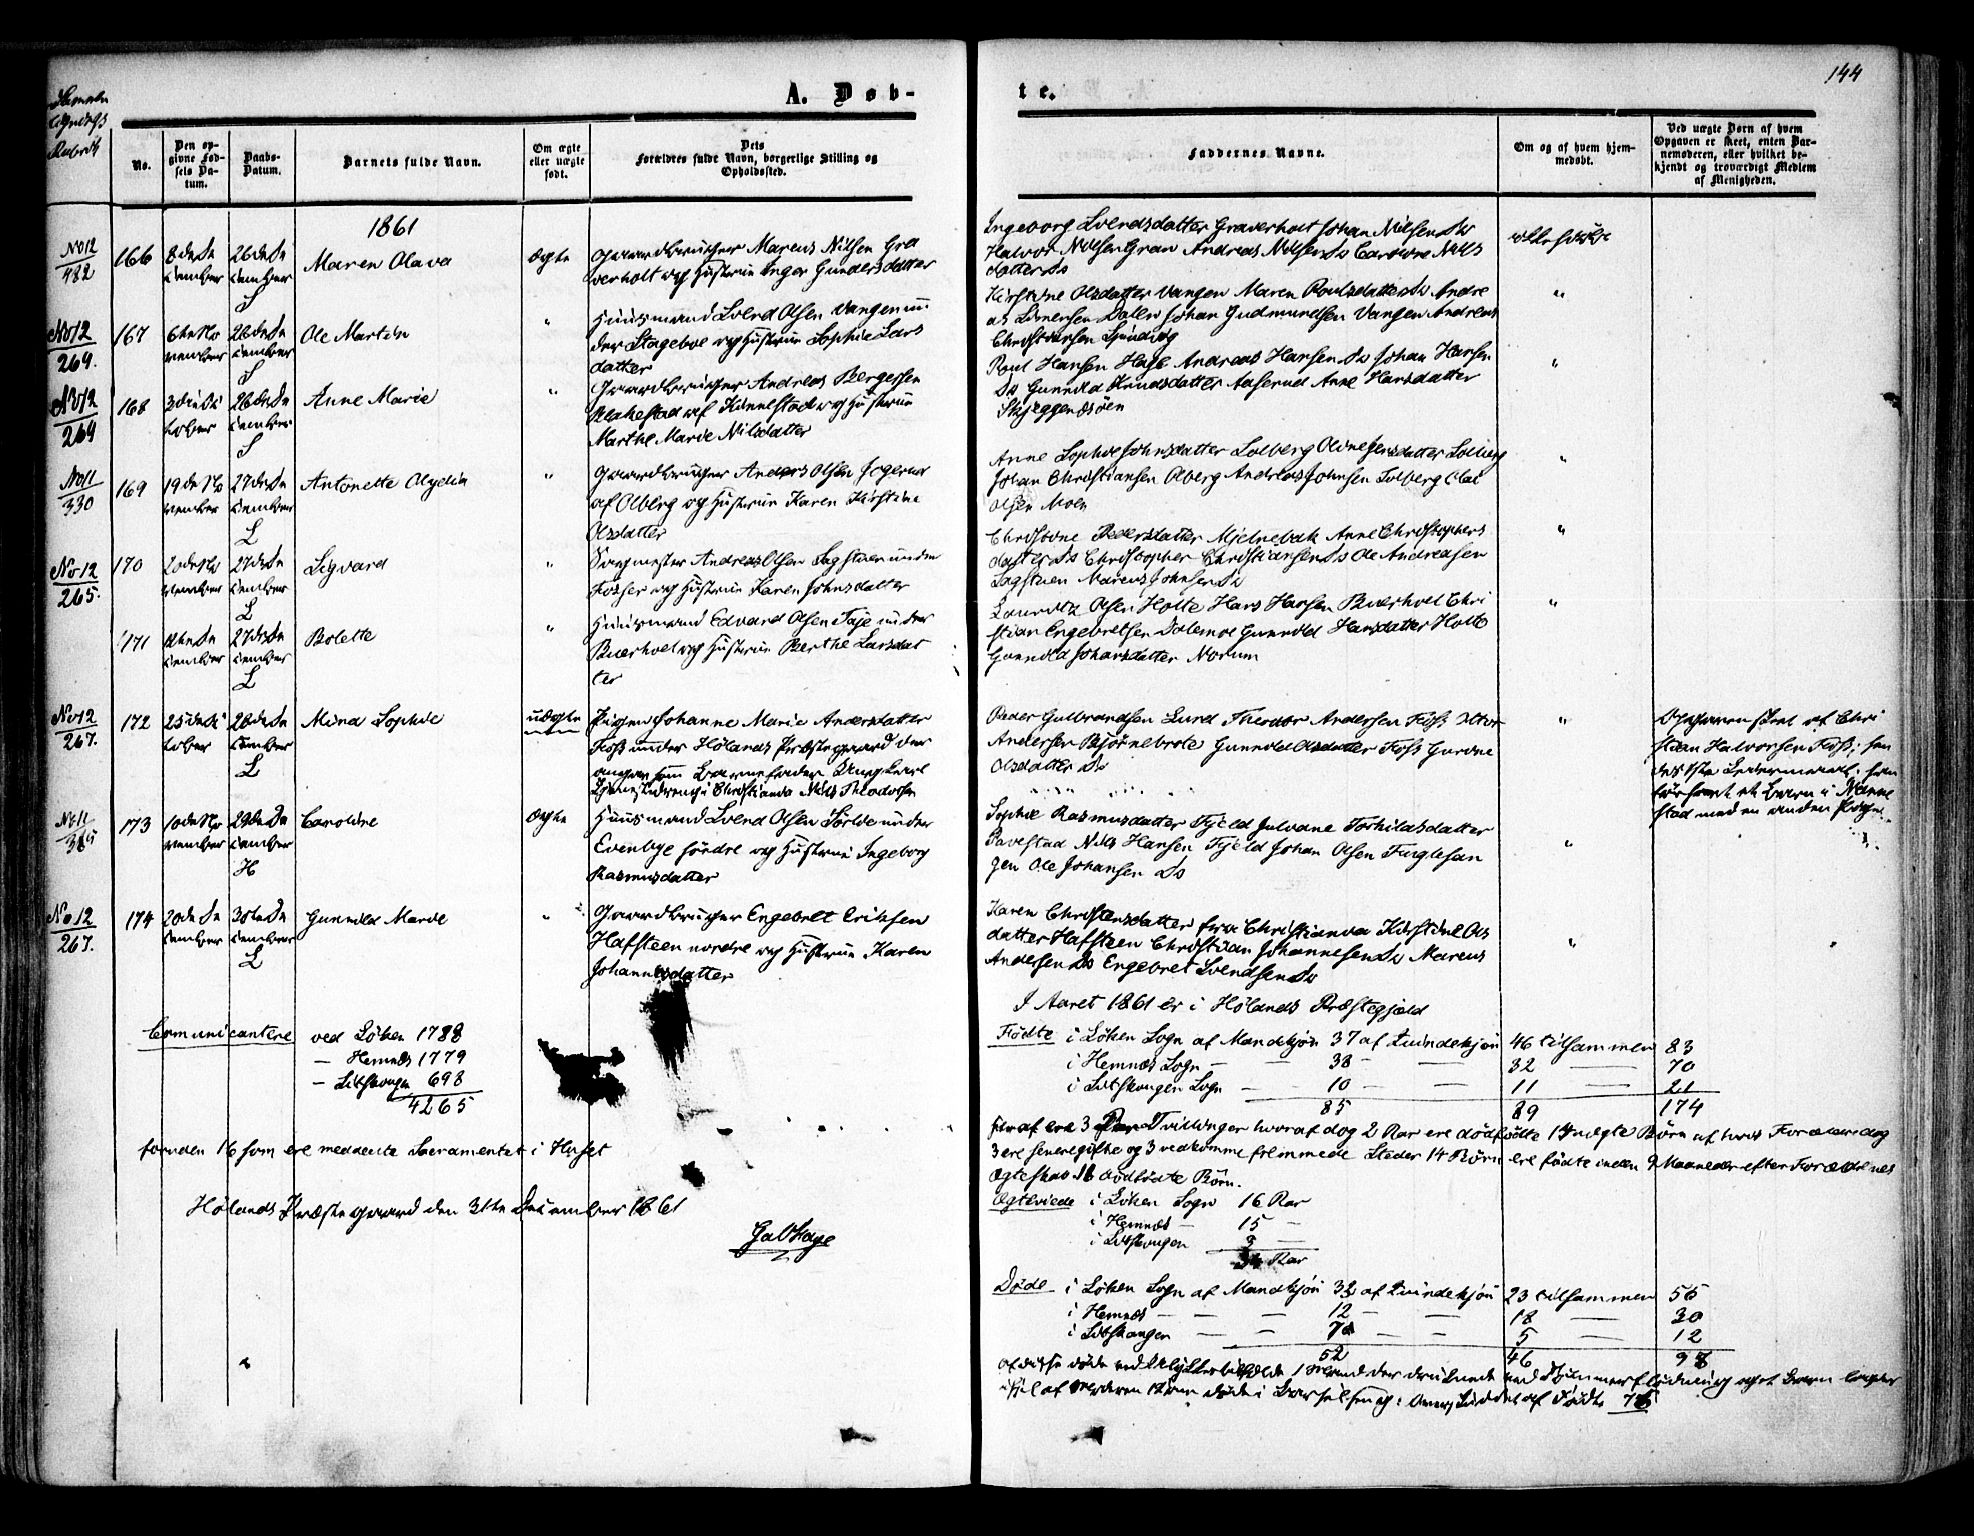 144
A. Døb-
te.
No.
Den op-
givne Fød-
sels Da-
tum.
Daabs-
Datum.
Barnets fulde Navn.
Om ægte
eller uægte
født.
Dets
Forældres fulde Navn, borgerlige Stilling og
Opholdssted.
Faddernes Navne.
Om og af hvem hjem-
medøbt.
Ved uægte Børn af hvem
Opgaven er skeet, enten Bar-
nemoderen, eller hvilket be-
kjendt og troværdigt Medlem
af Menigheden.
1861
No 12
482
166
8de De
cember
26de De
cember
S
Maren Olava
ægte
Gaardbruger Marcus Nilsen Gra
verholt og Hustrue Inger Gundersdatter
Ingeborg Svendsdatter Graverholt Johan Nilsen Ds
Halvor Nilsen Gran Andreas Nilsen Ds Caroline Nils
datter Ds
No 12
264.
167
6te No
vember
26de De
cember
S
Ole Martin
"
Huusmand Svend Olsen Vangen un
der Stageboe og Hustrue Sophie Lars
datter
Kirstine Olsdatter Vangen Maren Poulsdatter Ds Andre
as Johan Gudmundsen Vangen Andreas
Christiansen
"
No 12
264
168
3die Oc
tober
26de De
cember
S
Anne Marie
"
Gaardbruger Andreas Børgesen
af Kinnestad og Hustrue
Marthe Marie Nilsdatter
Poul Hansen Andreas Hansen Ds Johan Hansen
Ds Gunnild Knudsdatter Aaserud Anne Hansdatter
Skjeggenæsøen
"
No 11
330
169
19de No
vember
27de De
cember
L
Antonette Olydia
"
Gaardbruger Anders Olsen
af Olberg og Hustrue Karen Kirstine
Olsdatter
Anne Sophie Johnsdatter Solberg Oline Solberg
Johan Christiansen Olberg Andreas Johnsen Solberg Olai
Olsen Moen
"
No 12
265.
170
20de No
vember
27de De
cember
L
Sigvard
"
Andreas Olsen Sagstuen under
Fosser og Hustrue Karen Johnsdatter
Christine Pedersdatter Mjelnebak Anne Christophers
datter Ds Christopher Christiansen Ds Ole Andreasen
Sagstuen Marcus Johnsen Ds
"
171
De
cember
27de De
cember
L
Bolette
"
Huusmand Edvard Olsen Taje under
Buerhol og Hustrue Berthe Larsdat
ter
Lauritz Olsen Holte Hans Hansen Buerhol Chri
stian Engebretsen Dalemoe Gunnild Hansdatter Holte
Gunnild Johansdatter Norum
"
No 12
267.
172
25de Oc
tober
28de De
cember
L
Mina Sophie
uægte
Pigen Johanne Marie Andersdatter
Foss under Hølands Præstegaard der
angav som Barnefader Ungkarl
Christiania Nils Theodorsen
Peder Gulbrandsen Lund Theodor Andersen Foss
Andersen Bjørnebrote Gunnild Olsdatter Foss Gurine
Olsdatter Ds
"
Opgaven skeet af Chri
stian Halvorsen Foss; hen
des 1ste Leiermaal; han
har havt et Barn i Nanne
stad med en anden Pige.
No 11
173
10de No
vember
29de De
cember
H
Caroline
ægte
Huusmand Svend Olsen Sørlie under
Evenbye søndre og Hustrue Ingeborg
Rasmusdatter
Sophie Rasmusdatter Fjeld Julvane Torkildsdatter
Bavestad Nils Hansen Fjeld Johan Olsen Fuglesan
gen Ole Johansen Ds
"
No 12
267.
174
20de De
cember
De
cember
L
Gunnild Marie
"
Gaardbruger Engebret Eriksen
Hafsteen nordre og Hustrue Karen
Johannesdatter
Karen Christensdatter fra Christiania Kirstine Ols
datter Hafsteen Christian Johannesen Ds Marcus
Andersen Ds Engebret Svendsen Ds
"
Communicantere ved Løken 1788
— Hemnæs 1779
— Setskougen 698
4265
foruden 16 som ere meddeelte Sacramentet i Huset
Hølands Præstegaard den 31te December 1861
I Aaret 1861 er i Hølands Præstegjeld
Fødte i Løken Sogn af Mandkjøn 37 af Qvindekjøn 46 tilsammen 83
i Hemnæs Sogn — 38 — 32 — 70
i Setskougen Sogn — 10 — 11 — 21
85 89 174
heraf ere 3 Par Tvillinger hvoraf dog 2 Par ere dødfødte 14 uægte Børn af hvis Forældre dog
3 ere senere gifte og 3 vedkomme fremmede Steder 14 Børn ere fødte inden 9 Maaneder efter Forældrenes
Ægteskab. dødfødte Børn.
Ægteviede i Løken Sogn 16 Par
i Hemnæs — 15 —
i Setskougen 3 —
34 Par
Døde i Løken Sogn af Mandkjøn 32 af Qvindekjøn 23 tilsammen 55
i Hemnæs — 12 — 18 — 30
i Setskougen — — 5 — 12
52 46 98
af disse døde ved Ulykkestilfælde 1 Mand der druknede ved Tømmerflødning og et Barn
døde i Barselseng: Overskuddet af Fødte 76